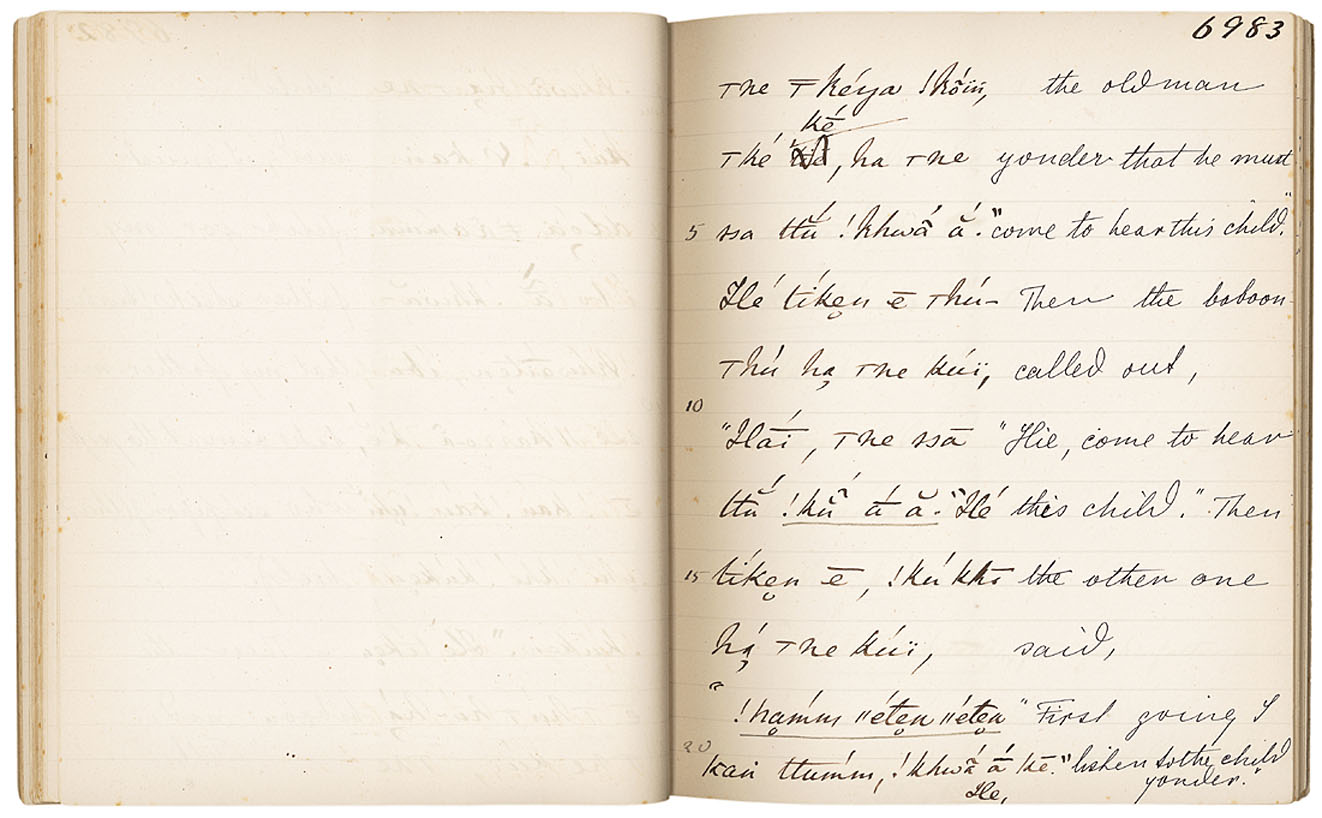 6983
⊤ne ⊤kéya !kṓïŋ, the old man
ké
⊤ké , ha ⊤ne yonder that he must
5 ssa ttŭ́ !khwā́ ắ." come to hear this child."
Hé tíkẹn ē ⊤hú- Then the baboon
⊤hú hạ ⊤ne kúï, called out,
10
"Hāí, ⊤ne ssā "Hie, come to hear
ttŭ́ !kŭ̃ ā́ ă." Hé this child." Then
15 tíkẹn ē, !kúkkō the other one
hạ́ ⊤ne kúï, said,
"!hạmím ǁétẹn ǁétẹn "First going I
20 kaŋ ttumím, !khwā̃́ ā́ kē." listen to the child
Hé, yonder."